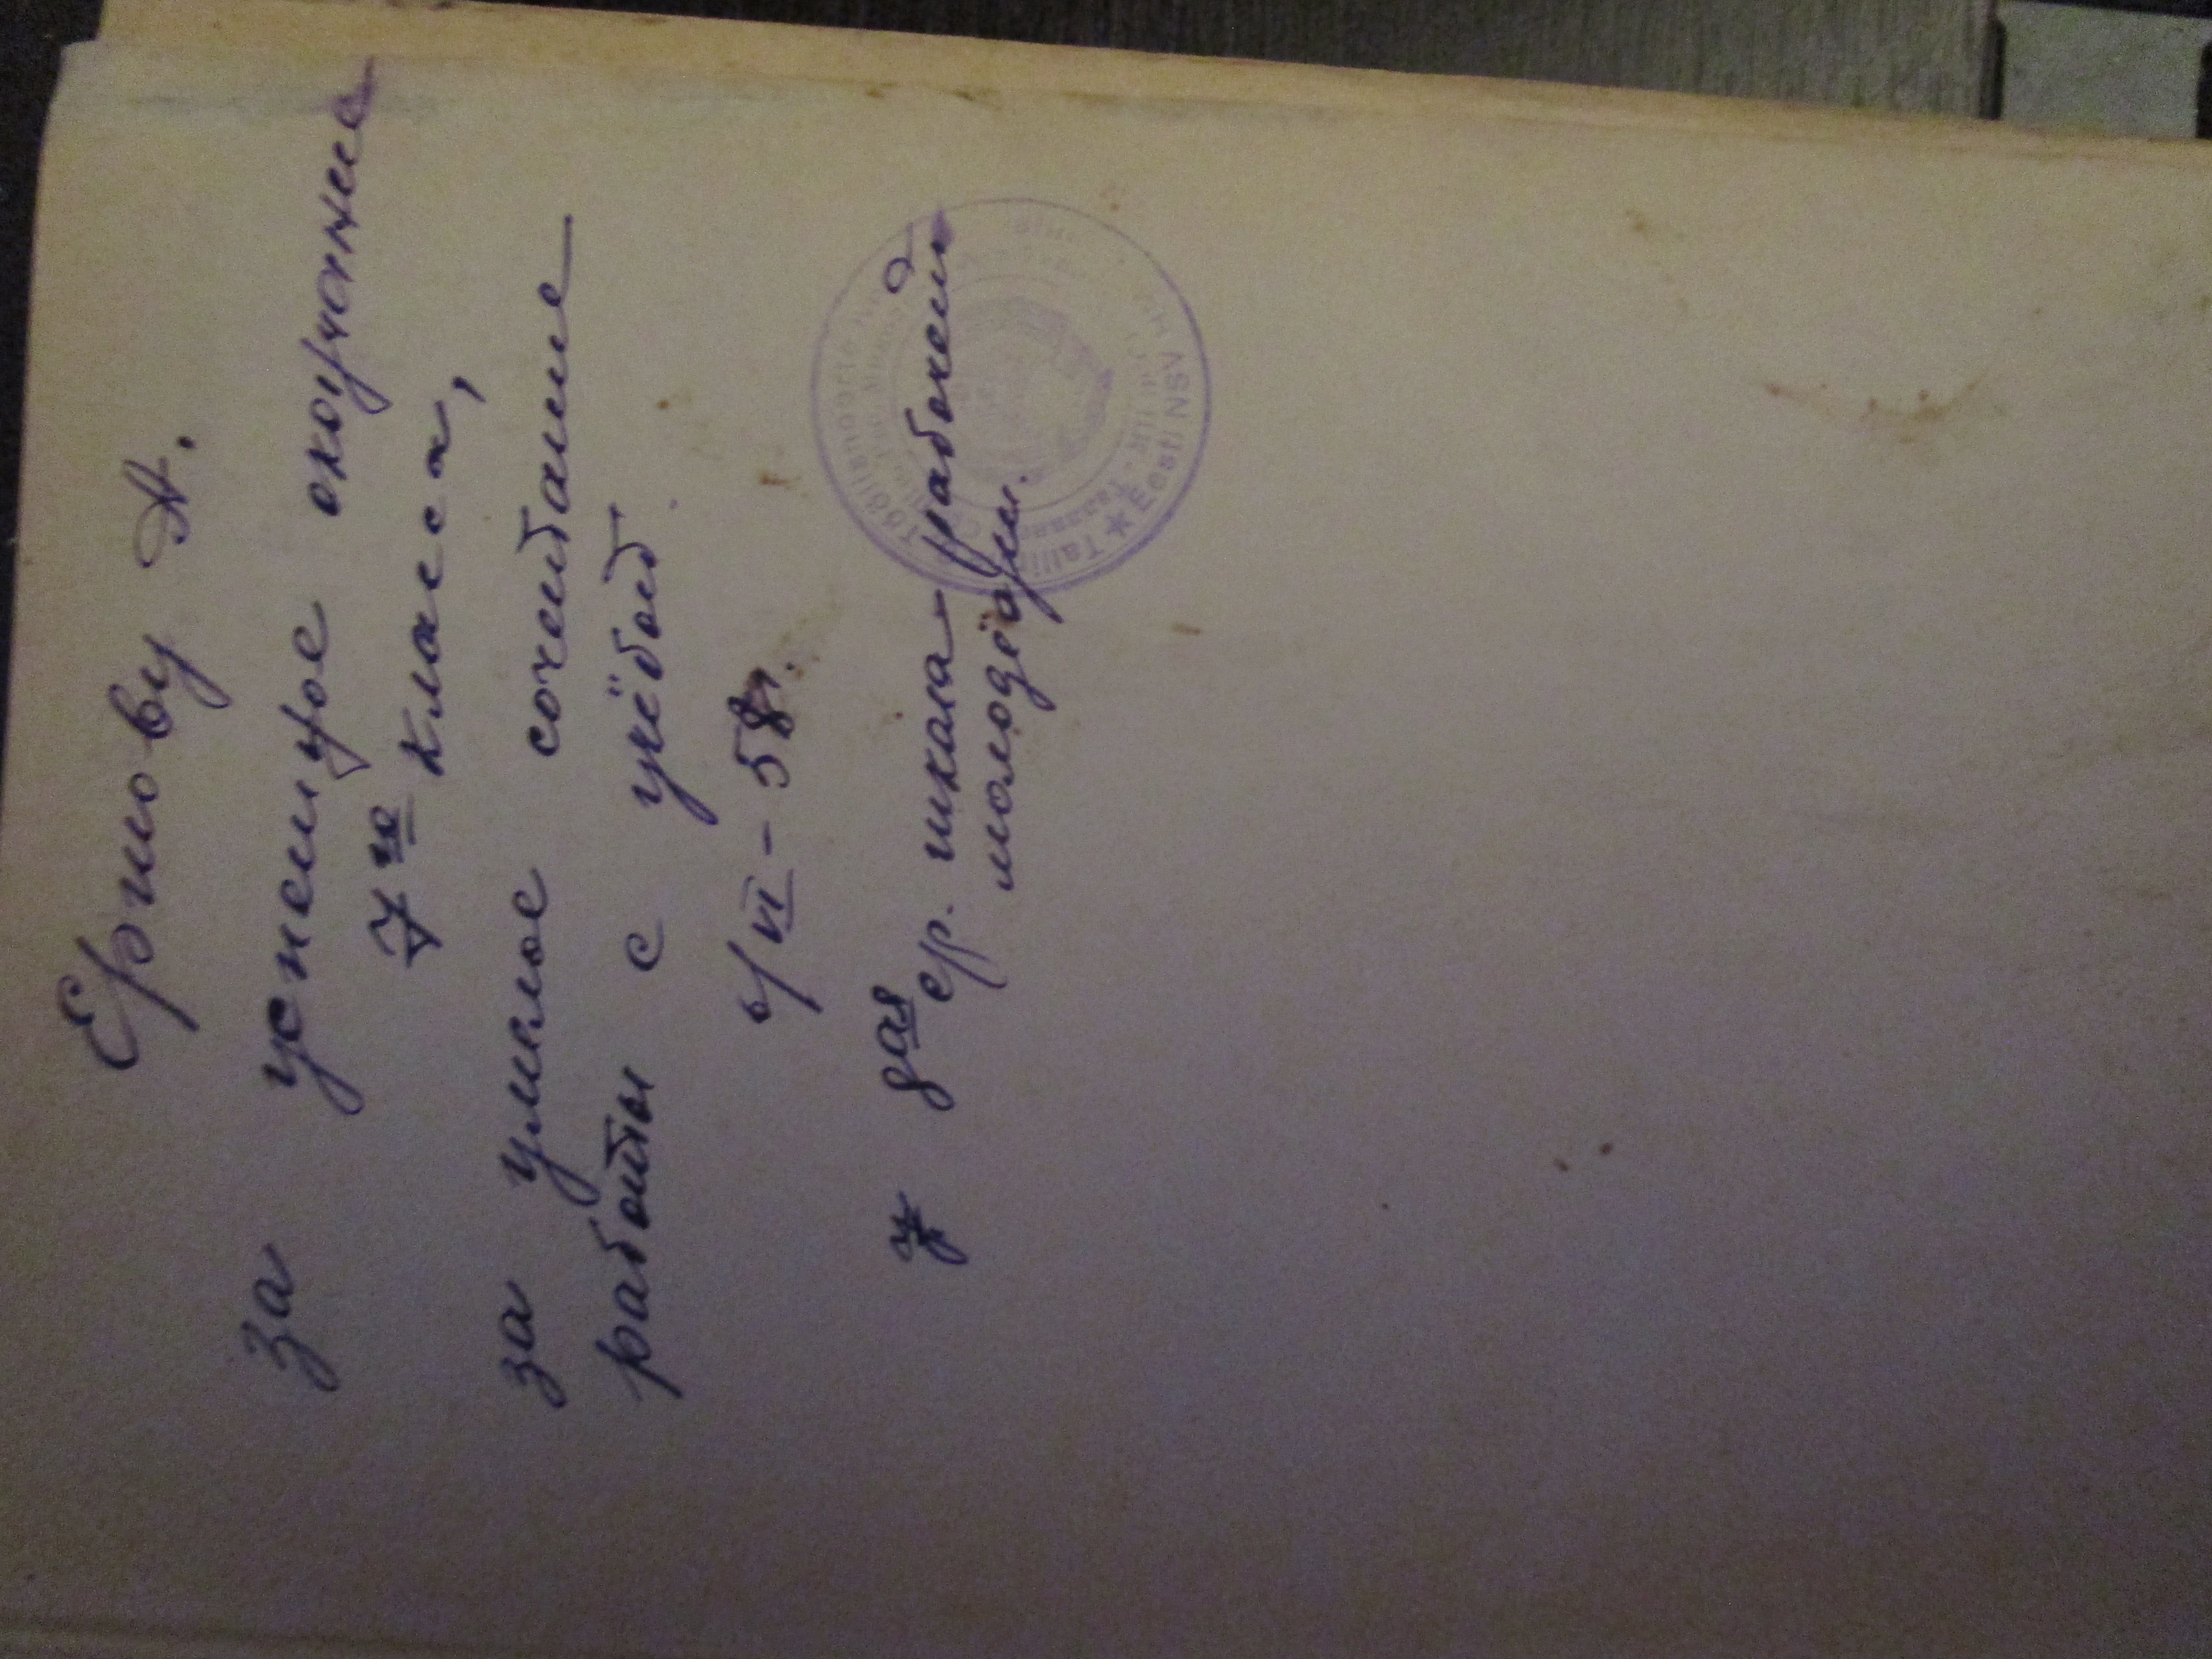 Ершову А.
за успешное окончание
7го класса,
за умелое сочетание
работы с учёбой
6/VI - 58г.
8ая ср. школа рабочей
молодёжи.
Tallinn
Eesti NSV